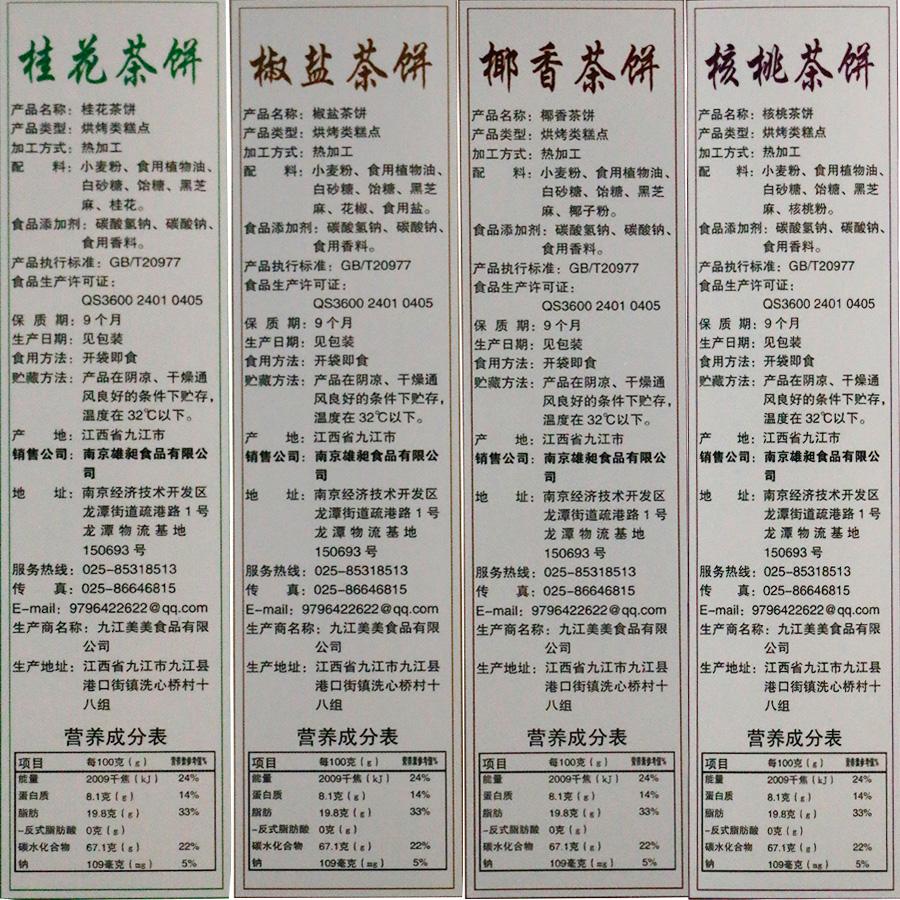 桂花茶饼
产品名称：桂花茶饼
产品类型：烘烤类糕点
加工方式：热加工
配　　料：小麦粉、食用植物油、
白砂糖、饴糖、黑芝
麻、桂花。
食品添加剂：碳酸氢钠、碳酸钠、
食用香料。
产品执行标准：GB/T20977
食品生产许可证：
QS3600 2401 0405
保 质 期：9个月
生产日期：见包装
食用方法：开袋即食
贮藏方法：产品在阴凉、干燥通
风良好的条件下贮存，
温度在32℃以下。
产　　地：江西省九江市
销售公司：南京雄昶食品有限公
司
地　　址：南京经济技术开发区
龙潭街道疏港路1号
龙潭物流基地
150693号
服务热线：025-85318513
传　　真：025-86646815
E-mail：9796422622@qq.com
生产商名称：九江美美食品有限
公司
生产地址：江西省九江市九江县
港口街镇洗心桥村十
八组
营养成分表
项目 每100克（g） 营养素参考值%
能量 2009千焦（kJ） 24%
蛋白质 8.1克（g） 14%
脂肪 19.8克（g） 33%
-反式脂肪酸 0克（g）
碳水化合物 67.1克（g） 22%
钠 109毫克（mg） 5%
椒盐茶饼
产品名称：椒盐茶饼
产品类型：烘烤类糕点
加工方式：热加工
配　　料：小麦粉、食用植物油、
白砂糖、饴糖、黑芝
麻、花椒、食用盐。
食品添加剂：碳酸氢钠、碳酸钠、
食用香料。
产品执行标准：GB/T20977
食品生产许可证：
QS3600 2401 0405
保 质 期：9个月
生产日期：见包装
食用方法：开袋即食
贮藏方法：产品在阴凉、干燥通
风良好的条件下贮存，
温度在32℃以下。
产　　地：江西省九江市
销售公司：南京雄昶食品有限公
司
地　　址：南京经济技术开发区
龙潭街道疏港路1号
龙潭物流基地
150693号
服务热线：025-85318513
传　　真：025-86646815
E-mail：9796422622@qq.com
生产商名称：九江美美食品有限
公司
生产地址：江西省九江市九江县
港口街镇洗心桥村十
八组
营养成分表
项目 每100克（g） 营养素参考值%
能量 2009千焦（kJ） 24%
蛋白质 8.1克（g） 14%
脂肪 19.8克（g） 33%
-反式脂肪酸 0克（g）
碳水化合物 67.1克（g） 22%
钠 109毫克（mg） 5%
椰香茶饼
产品名称：椰香茶饼
产品类型：烘烤类糕点
加工方式：热加工
配　　料：小麦粉、食用植物油、
白砂糖、饴糖、黑芝
麻、椰子粉。
食品添加剂：碳酸氢钠、碳酸钠、
食用香料。
产品执行标准：GB/T20977
食品生产许可证：
QS3600 2401 0405
保 质 期：9个月
生产日期：见包装
食用方法：开袋即食
贮藏方法：产品在阴凉、干燥通
风良好的条件下贮存，
温度在32℃以下。
产　　地：江西省九江市
销售公司：南京雄昶食品有限公
司
地　　址：南京经济技术开发区
龙潭街道疏港路1号
龙潭物流基地
150693号
服务热线：025-85318513
传　　真：025-86646815
E-mail：9796422622@qq.com
生产商名称：九江美美食品有限
公司
生产地址：江西省九江市九江县
港口街镇洗心桥村十
八组
营养成分表
项目 每100克（g） 营养素参考值%
能量 2009千焦（kJ） 24%
蛋白质 8.1克（g） 14%
脂肪 19.8克（g） 33%
-反式脂肪酸 0克（g）
碳水化合物 67.1克（g） 22%
钠 109毫克（mg） 5%
核桃茶饼
产品名称：核桃茶饼
产品类型：烘烤类糕点
加工方式：热加工
配　　料：小麦粉、食用植物油、
白砂糖、饴糖、黑芝
麻、核桃粉。
食品添加剂：碳酸氢钠、碳酸钠、
食用香料。
产品执行标准：GB/T20977
食品生产许可证：
QS3600 2401 0405
保 质 期：9个月
生产日期：见包装
食用方法：开袋即食
贮藏方法：产品在阴凉、干燥通
风良好的条件下贮存，
温度在32℃以下。
产　　地：江西省九江市
销售公司：南京雄昶食品有限公
司
地　　址：南京经济技术开发区
龙潭街道疏港路1号
龙潭物流基地
150693号
服务热线：025-85318513
传　　真：025-86646815
E-mail：9796422622@qq.com
生产商名称：九江美美食品有限
公司
生产地址：江西省九江市九江县
港口街镇洗心桥村十
八组
营养成分表
项目 每100克（g） 营养素参考值%
能量 2009千焦（kJ） 24%
蛋白质 8.1克（g） 14%
脂肪 19.8克（g） 33%
-反式脂肪酸 0克（g）
碳水化合物 67.1克（g） 22%
钠 109毫克（mg） 5%